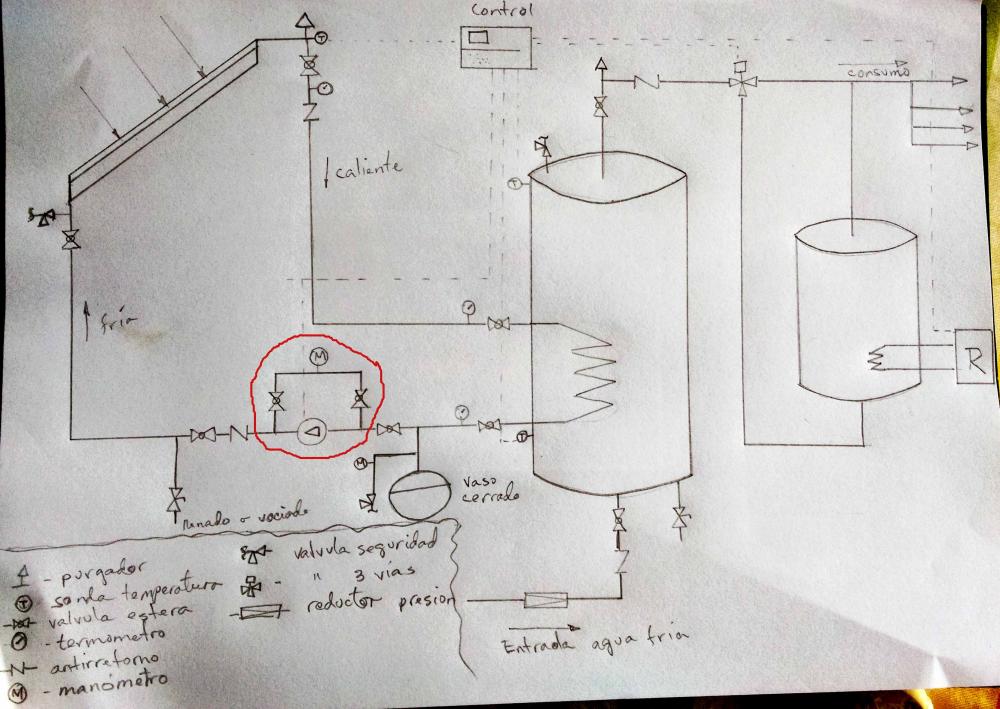 Control
T
consumo
caliente
T
fría
M
R
T
M
vaso
cerrado
llenado o vaciado
- purgador
T sonda temperatura
valvula esfera
- termometro
antirretorno
M - manómetro
valvula seguridad
- " 3 vías
reductor presion
Entrada agua fria